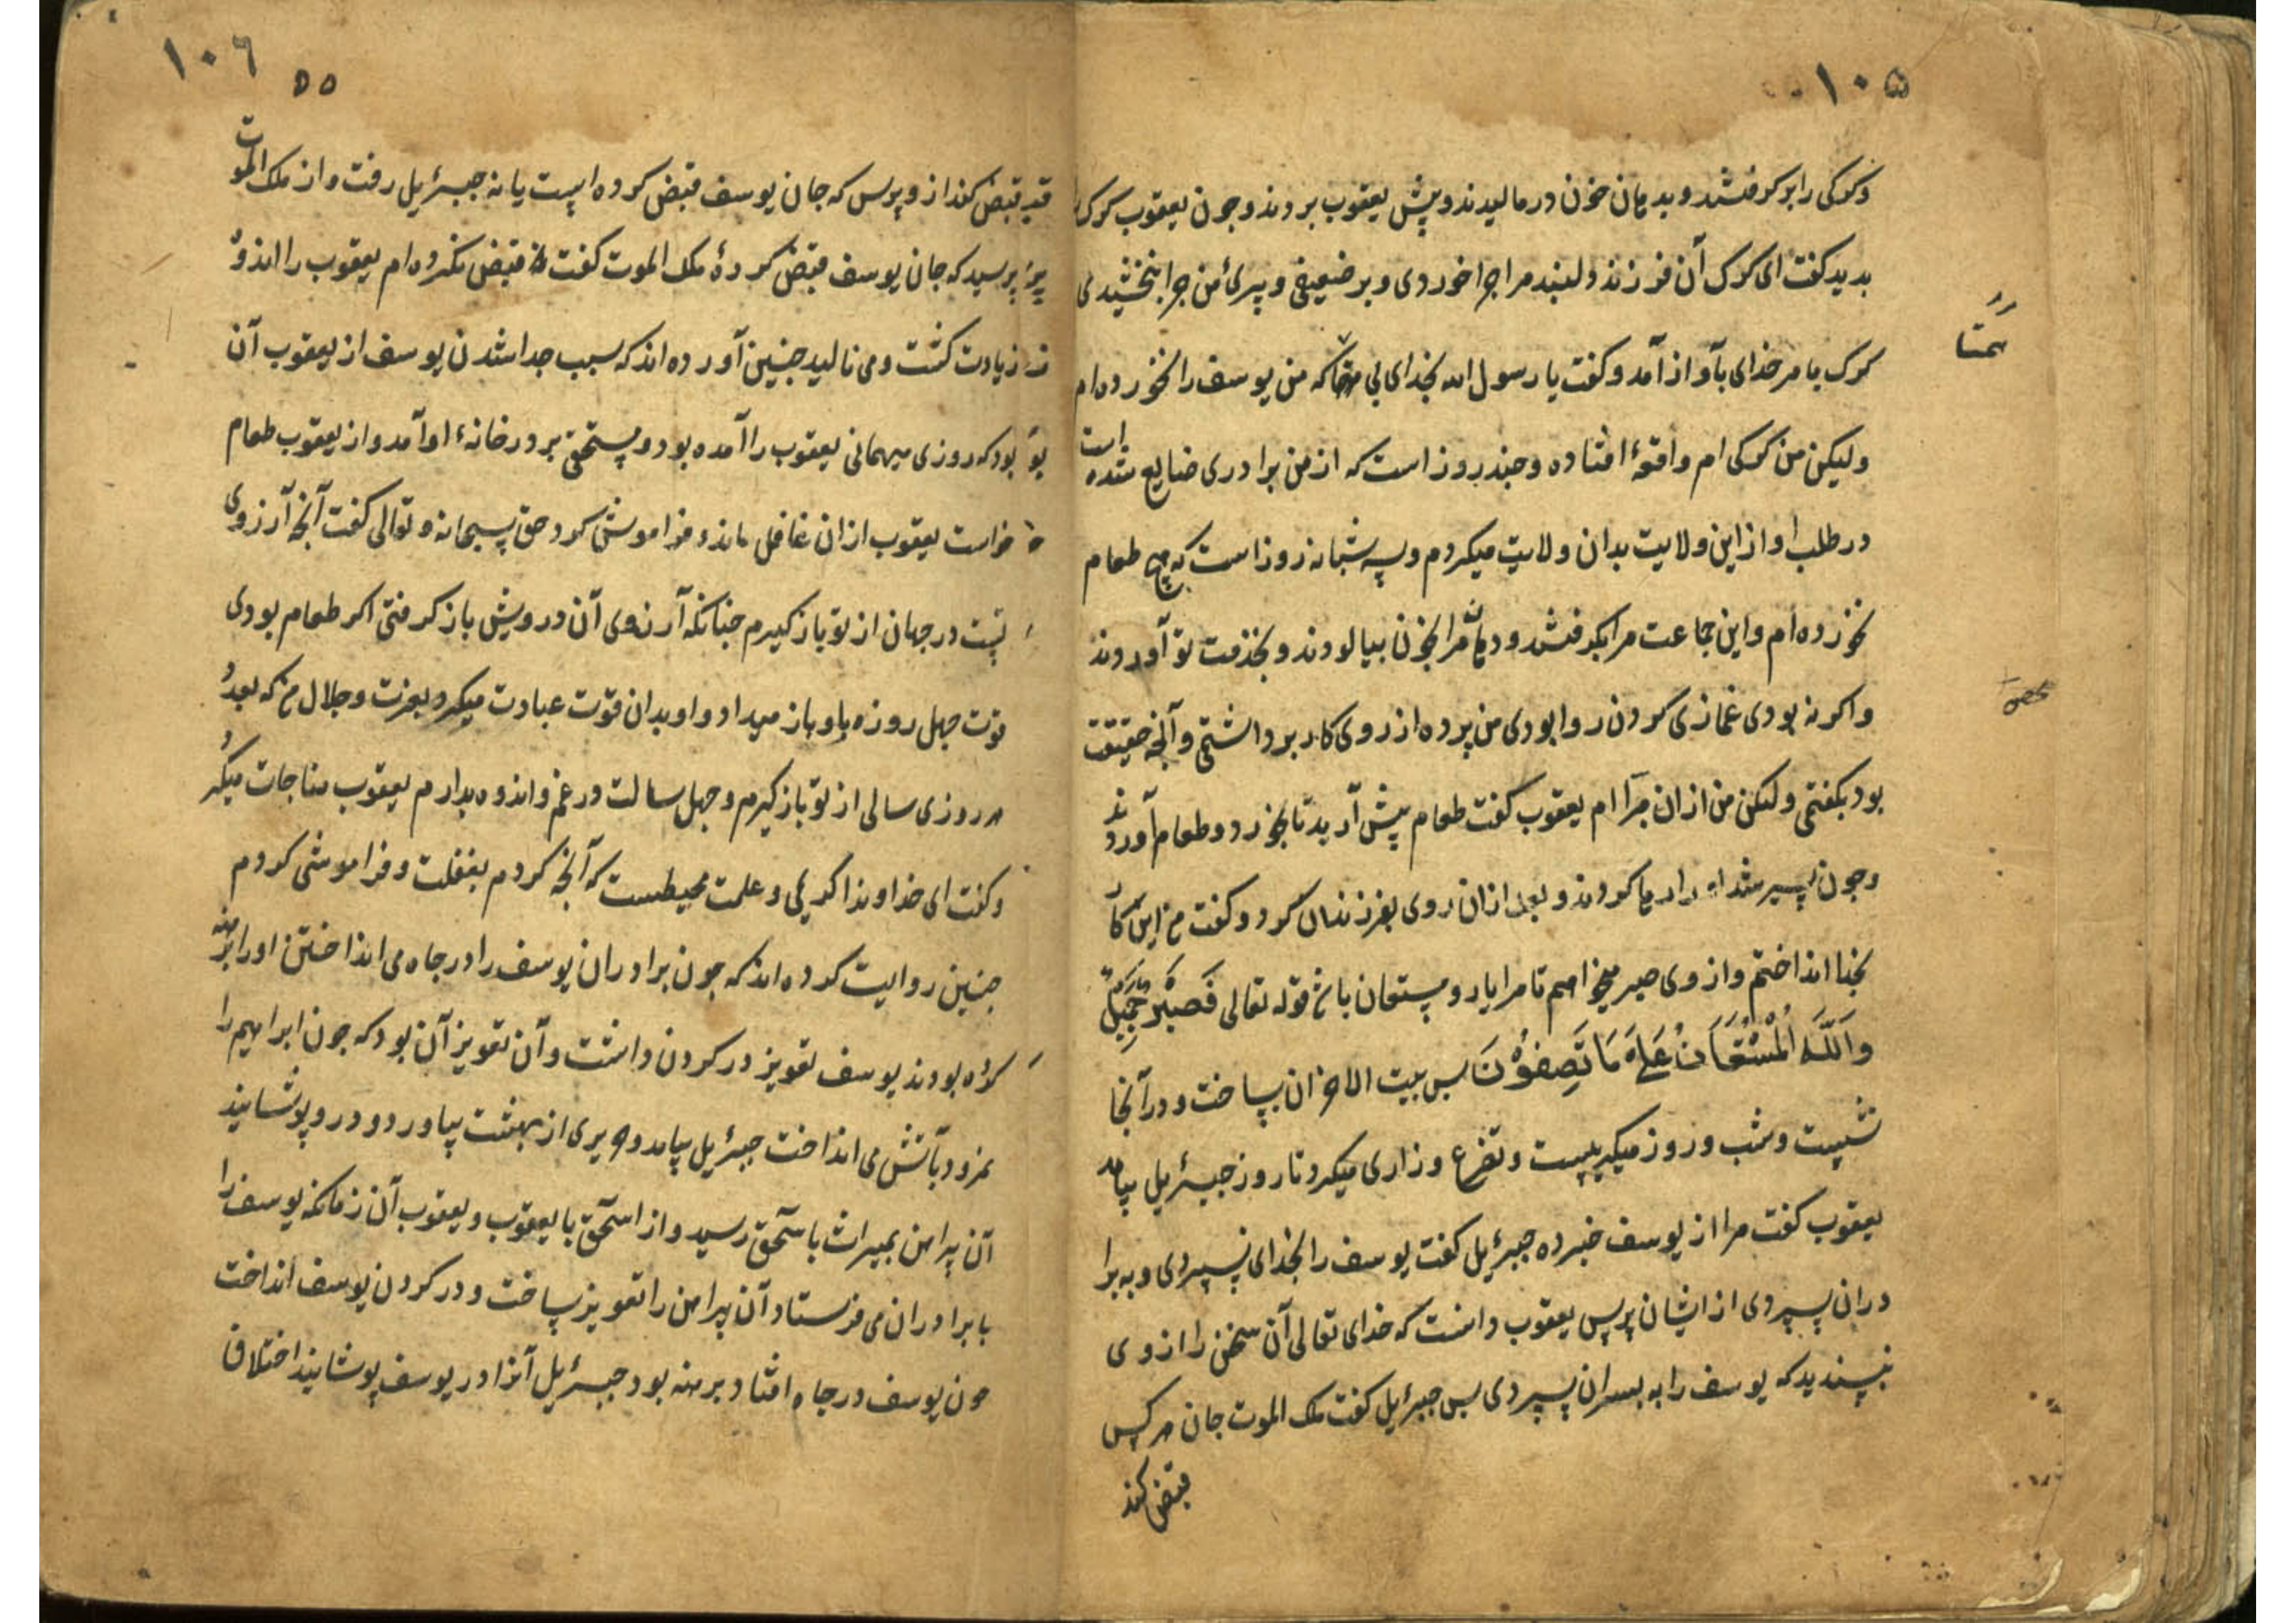 ۱۰۵
وکرکی را بر کرفتند و بدهان خون در مالیدند و پیش یعقوب بردند و جون یعقوب کرک
بدید کفت ای کرک آن فرزند دلبند مرا جرا خوردی و بر ضعیفی و پیرئ من جرا نبخشیدی
کرک با مر خدای بآواز آمد و کفت یا رسول الله بخدای بی همتا که من یوسف را نخورده ام
همتا
ولیکن من کرکی ام واقعهٔ افتاده و جند روز است که از من برادری ضایع شده است
در طلب او از این ولایت بدان ولایت میکردم و سه شبانه روز است که هیچ طعام
نخورده ام و این جماعت مرا بکرفتند و دهان مرا بخون بیالودند و بخدمت تو آوردند
و اکر نه بودی غمازی کردن روا بودی من پرده از روی کار برداشتمی و آنجه حقیقت
بود بکفتمی ولکن من ازان مبرّا ام یعقوب کفت طعام پیش آرید تا بخورد و طعام آوردند
وجون سیر شد او را رها کردند و بعد ازان روی بفرزندان کرد و کفت من این کار
بخدا انداختم و از وی صبر میخواهم تا مرا یار و مستعان باشد قوله تعالی فَصَبْرٌ جَمِیلٌ
وَاللّٰهُ الْمُسْتَعَانُ عَلَی مَا تَصِفُوْنَ بس بیت الاحزان بساخت و در آنجا
نشست و شب و روز میکریست و تضرع و زاری میکرد تا روز جبرئیل بیامد
یعقوب کفت مرا از یوسف خبر ده جبرئیل کفت یوسف را بخدای نسپردی و به برا
دران سپردی از ایشان پرس یعقوب دانست که خدای تعالی آن سخن را از وی
نپسندید که یوسف را به بسران سپردی بس جبرئیل کفت ملک الموت جان هر کس
قبض کند
۱۰۶
۵۵
قبض کند از و پرس که جان یوسف قبض کرده است یا نه جبرئیل رفت و از ملک الموت
پرسید که جان یوسف قبض کردهٔ ملک الموت کفت نه قبض نکرده ام یعقوب را اندوه
زیادت کشت و می نالید جنین آورده اند که سبب جدا شدن یوسف از یعقوب آن
بود که روزی میهمانی یعقوب را آمده بود و مستحق بر در خانهٔ او آمد و از یعقوب طعام
خواست یعقوب ازان غافل ماند و فراموش کرد حق سبحانه و تعالی کفت آنجه آرزوی
تست در جهان از تو باز کیرم جنانکه آرزوی آن درویش باز کرفتی اکر طعام بودی
قوت جهل روزه باو باز میداد و او بدان قوت عبادت میکرد بعزت و جلال من که بعدد
هر روزی سالی از تو باز کیرم و جهل سالت در غم و اندوه بدارم یعقوب مناجات میکرد
و کفت ای خداوندا کریمی و علمت محیطست که آنجه کردم بغفلت و فراموشی کردم
جنین روایت کرده اند که جون برادران یوسف را در جاه می انداختن او را برهنه
کرده بودند یوسف تعویز در کردن داشت و آن تعویز آن بود که جون ابراهیم را
نمرود بآتش می انداخت جبرئیل بیامد و حریری از بهشت بیاورد و در و پوشانید
آن پیراهن بمیراث باسحق رسید و از اسحق با یعقوب و یعقوب آن زمانکه یوسف را
با برادران می فرستاد آن پیراهن را تعویز ساخت و در کردن یوسف انداخت
جون یوسف در جاه افتاد برهنه بود جبرئیل آنرا در یوسف پوشانید اختلاف